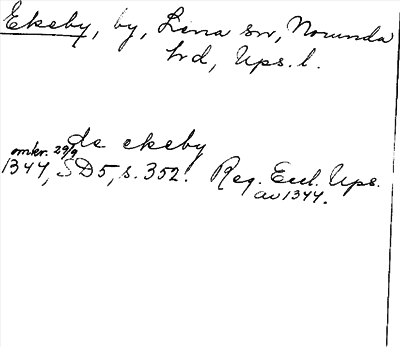 Ekeby, by, Lena sn, Norunda
hd, Ups. l.
de ekeby
omkr. 29/9
1344, SD5, s. 352. Reg. Eccl. Ups.
av 1344.